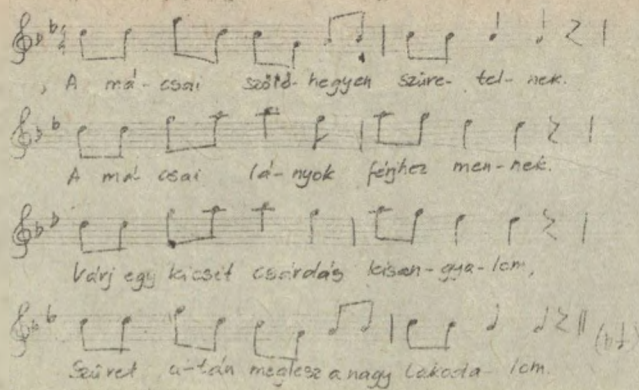 A má-csai szőlő-hegyen szüre-tel-nek.
A má-csai lá-nyok férjhez men-nek.
Várj egy kicsit csárdás kisan-gya-lom,
Szüret u-tán meglesz a nagy lakoda-lom.